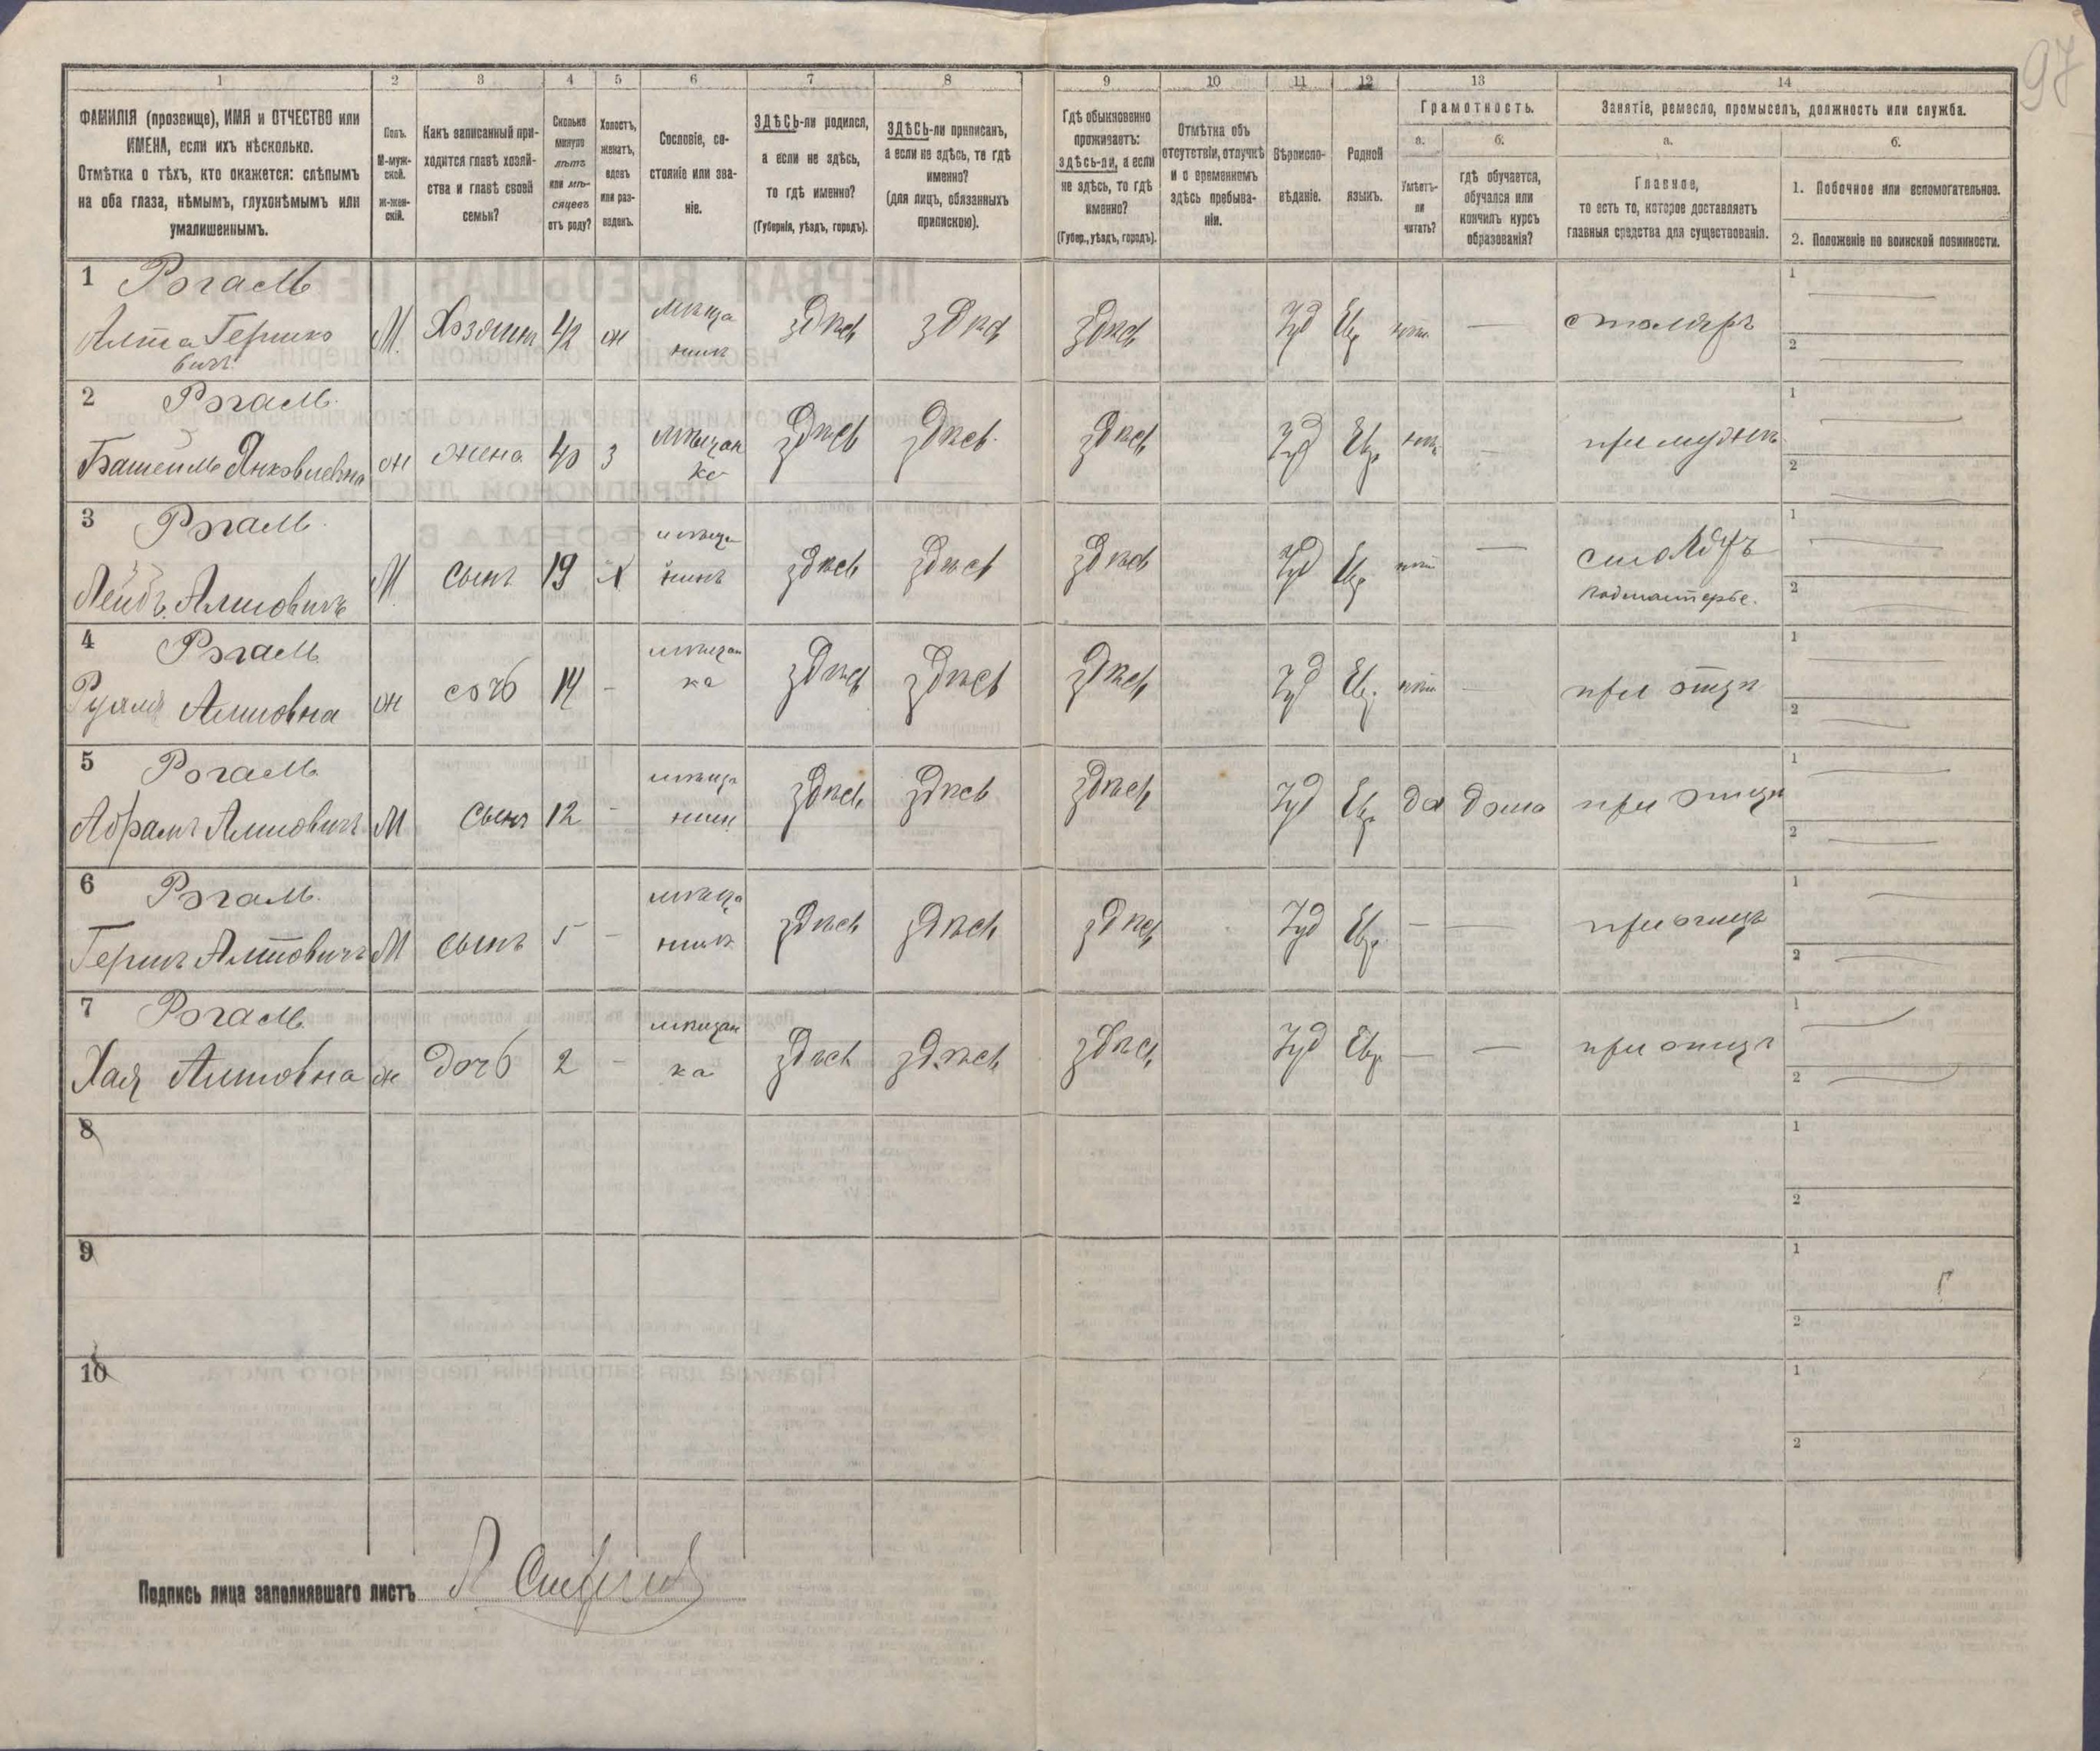 97
1 2 3 4 5 6 7 8 9 10 11 12 13 14
ФАМИЛІЯ (прозвище), ИМЯ и ОТЧЕСТВО или
ИМЕНА, если ихъ нѣсколько.
Отмѣтка о тѣхъ, кто окажется: слѣпымъ
на оба глаза, нѣмымъ, глухонѣмымъ или
умалишеннымъ.
Полъ.
М-муж-
ской.
Ж-жен-
скій.
Какъ записанный при-
ходится главѣ хозяй-
ства и главѣ своей
семьи?
Сколько
минуло
лѣтъ
или мѣ-
сяцевъ
отъ роду?
Холостъ,
женатъ,
вдовъ
или раз-
веденъ.
Сословіе, со-
стояніе или зва-
ніе.
ЗДѢСЬ-ли родился,
а если не здѣсь,
то гдѣ именно?
(Губернія, уѣздъ, городъ).
ЗДѢСЬ-ли приписанъ,
а если не здѣсь, то гдѣ
именно?
(для лицъ, обязанныхъ
припискою).
Гдѣ обыкновенно
проживаетъ:
здѣсь-ли, а если
не здѣсь, то гдѣ
именно?
(Губер., уѣздъ, городъ).
Отмѣтка объ
отсутствіи, отлучкѣ
и о временномъ
здѣсь пребыва-
ніи.
Вѣроиспо-
вѣданіе.
Родной
языкъ.
Грамотность.
а.
Умѣетъ-
ли
читать?
б.
гдѣ обучается,
обучался или
кончилъ курсъ
образованія?
Занятіе, ремесло, промыселъ, должность или служба.
а.
Главное,
то есть то, которое доставляетъ
главныя средства для существованія.
б.
1. Побочное или вспомогательное.
2. Положеніе по воинской повинности.
1 Рогаль
Алта Гершко
вичъ М. Хозяинъ 42 ж мѣща
нинъ здѣсь здѣсь здѣсь Іуд Евр нѣт — столяръ 1 — 2 —
2 Рогаль
Башейль Янковлевна ж жена 40 З мѣщан
ка здѣсь здѣсь здѣсь Іуд Евр нѣт — при мужѣ 1 — 2 —
3 Рогаль
Лейбъ Алтовичъ М. сынъ 19 Х мѣща
нинъ здѣсь здѣсь здѣсь Іуд Евр нѣт — столяръ
подмастерье. 1 — 2 —
4 Рогаль
Алтовна ж дочь 14 - мѣщан
ка здѣсь здѣсь здѣсь Іуд Евр. нѣт — при отцѣ 1 — 2 —
5 Рогаль
Абрамъ Алтовичъ М сынъ 12 - мѣща
нин здѣсь здѣсь здѣсь Іуд Евр да дома при отцѣ 1 — 2 —
6 Рогаль
Гершъ Алтовичъ М сынъ 5 - мѣща
нинъ здѣсь здѣсь здѣсь Іуд Евр — — при отцѣ 1 — 2 —
7 Рогаль
Хая Алтовна ж дочь 2 - мѣщан
ка здѣсь здѣсь здѣсь Іуд Евр — — при отцѣ 1 — 2 —
8 1 2
9 1 2
10 1 2
Подпись лица заполнявшаго листъ